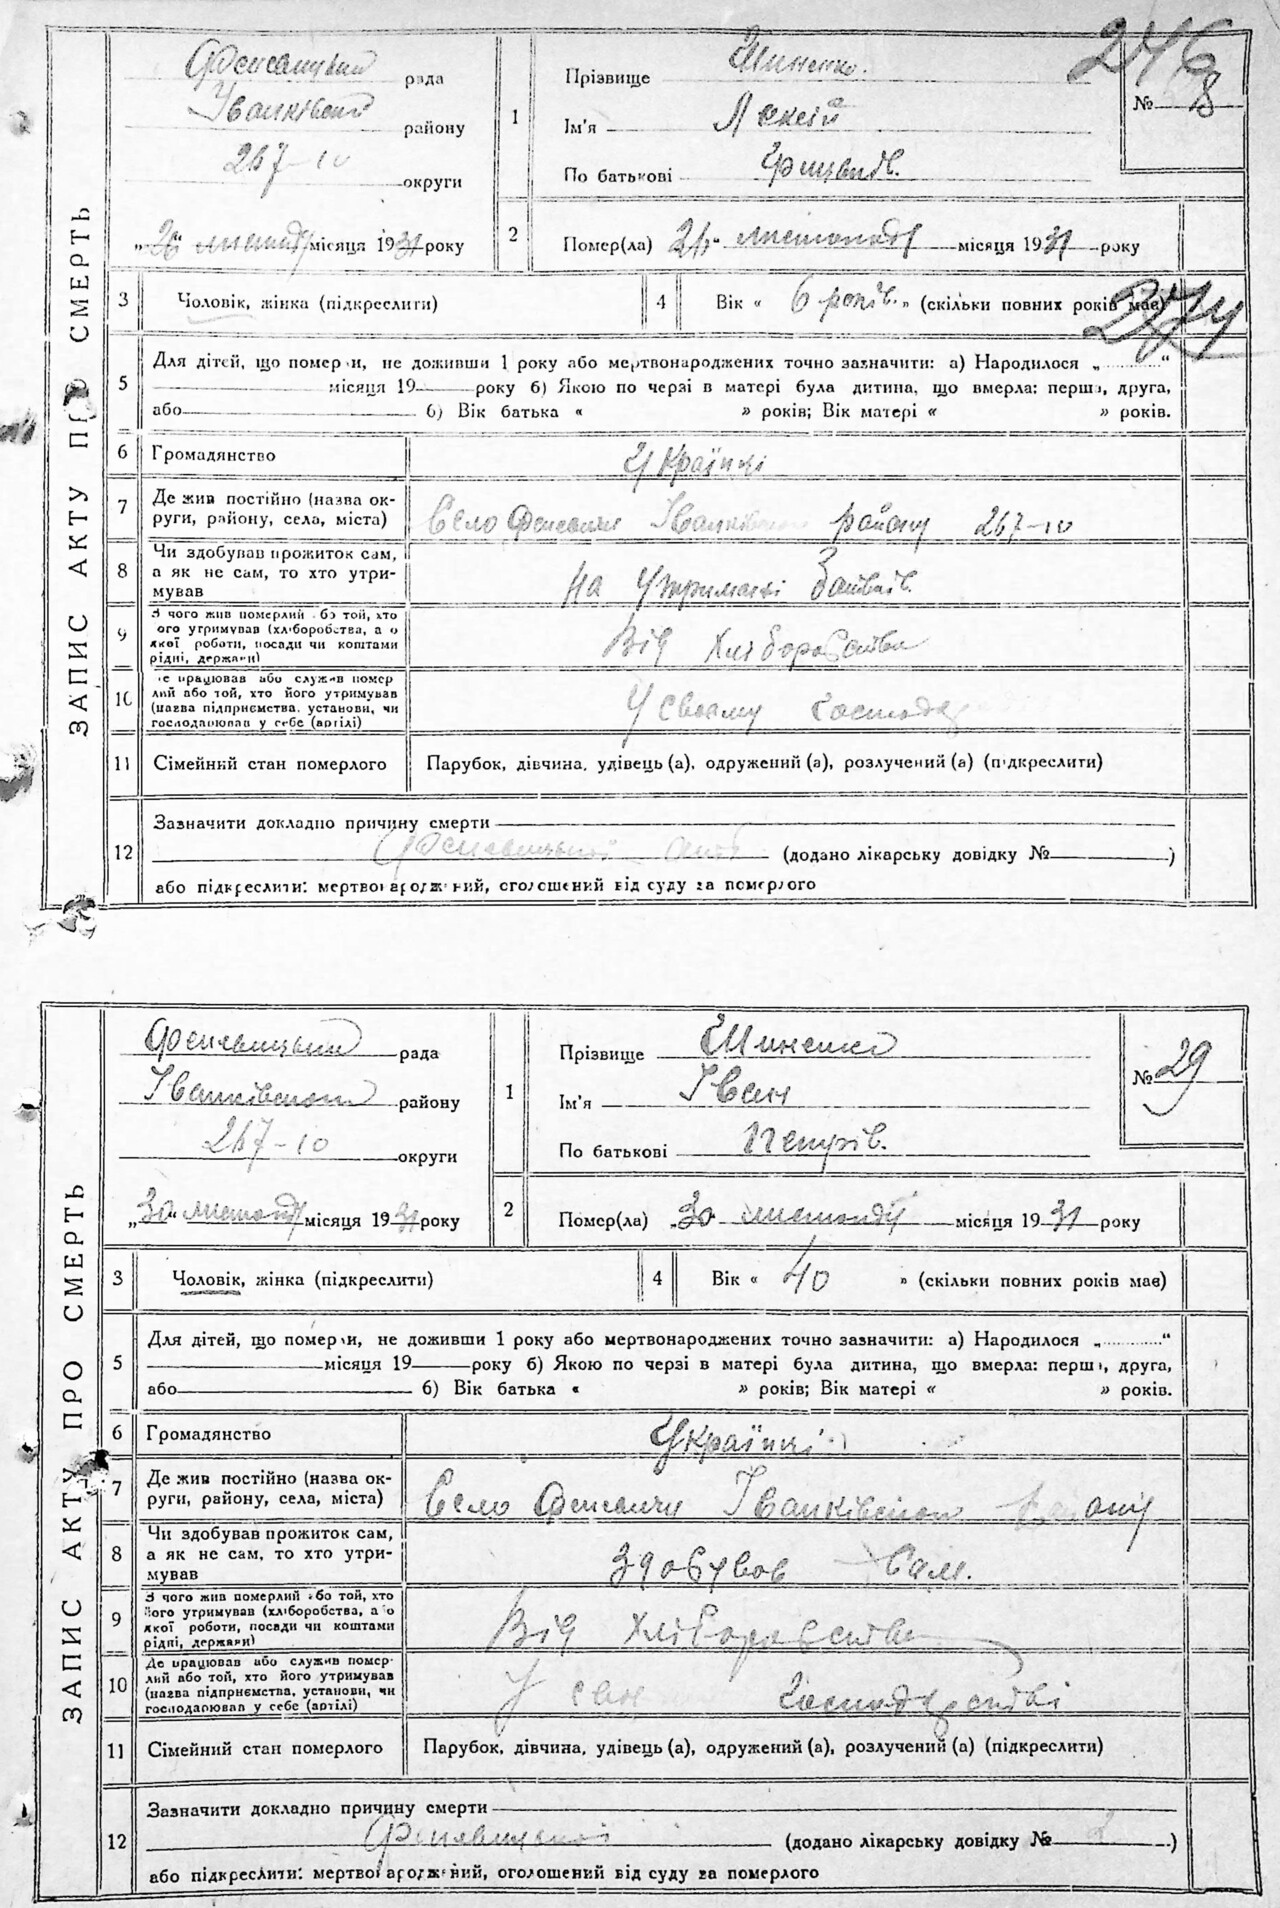 ЗАПИС АКТУ ПРО СМЕРТЬ
246
№ 8
рада
Іванківськ району
округи
„26“ листопад місяця 1931 року
1
Прізвище Шиненко.
Ім'я Лексій
По батькові
2
Помер(ла) 26 листопада місяця 1931 року
3 Чоловік, жінка (підкреслити)
4 Вік « 6 років. » (скільки повних років має)
274
5 Для дітей, що померли, не доживши 1 року або мертвонароджених точно зазначити: а) Народилося „ “
місяця 19 року б) Якою по черзі в матері була дитина, що вмерла: перша, друга,
або б) Вік батька « » років; Вік матері « » років.
6 Громадянство Українкі
7 Де жив постійно (назва ок-
руги, району, села, міста) Село Іванківськ району
8 Чи здобував прожиток сам,
а як не сам, то хто утри-
мував На утриманкі батьків.
9 З чого жив померлий або той, хто
його утримував (хліборобства, а о
якої роботи, посади чи коштами
рідні, держави) Від хліборобства
10 Де працював або служив помер
лий або той, хто його утримував
(назва підприємства, установи, чи
господарював у себе (артілі) У своєму господар
11 Сімейний стан померлого Парубок, дівчина, удівець (а), одружений (а), розлучений (а) (підкреслити)
12 Зазначити докладно причину смерти
(додано лікарську довідку № )
або підкреслити: мертвонароджений, оголошений від суду за померлого
ЗАПИС АКТУ ПРО СМЕРТЬ
№ 29
рада
Іванківського району
округи
„30“ листопад місяця 1931 року
1
Прізвище Шиненко
Ім'я Іван
По батькові Петрів.
2
Помер(ла) „30 листопада місяця 1931 року
3 Чоловік, жінка (підкреслити)
4 Вік « 40 » (скільки повних років має)
5 Для дітей, що померли, не доживши 1 року або мертвонароджених точно зазначити: а) Народилося „ “
місяця 19 року б) Якою по черзі в матері була дитина, що вмерла: перша, друга,
або б) Вік батька « » років; Вік матері « » років.
6 Громадянство Українкі
7 Де жив постійно (назва ок-
руги, району, села, міста) Село Іванківського
8 Чи здобував прожиток сам,
а як не сам, то хто утри-
мував Здобував сам.
9 З чого жив померлий або той, хто
його утримував (хліборобства, а о
якої роботи, посади чи коштами
рідні, держави) Від хліборобства
10 Де працював або служив помер-
лий або той, хто його утримував
(назва підприємства, установи, чи
господарював у себе (артілі) У господарстві
11 Сімейний стан померлого Парубок, дівчина, удівець (а), одружений (а), розлучений (а) (підкреслити)
12 Зазначити докладно причину смерти
(додано лікарську довідку № )
або підкреслити: мертвонароджений, оголошений від суду за померлого